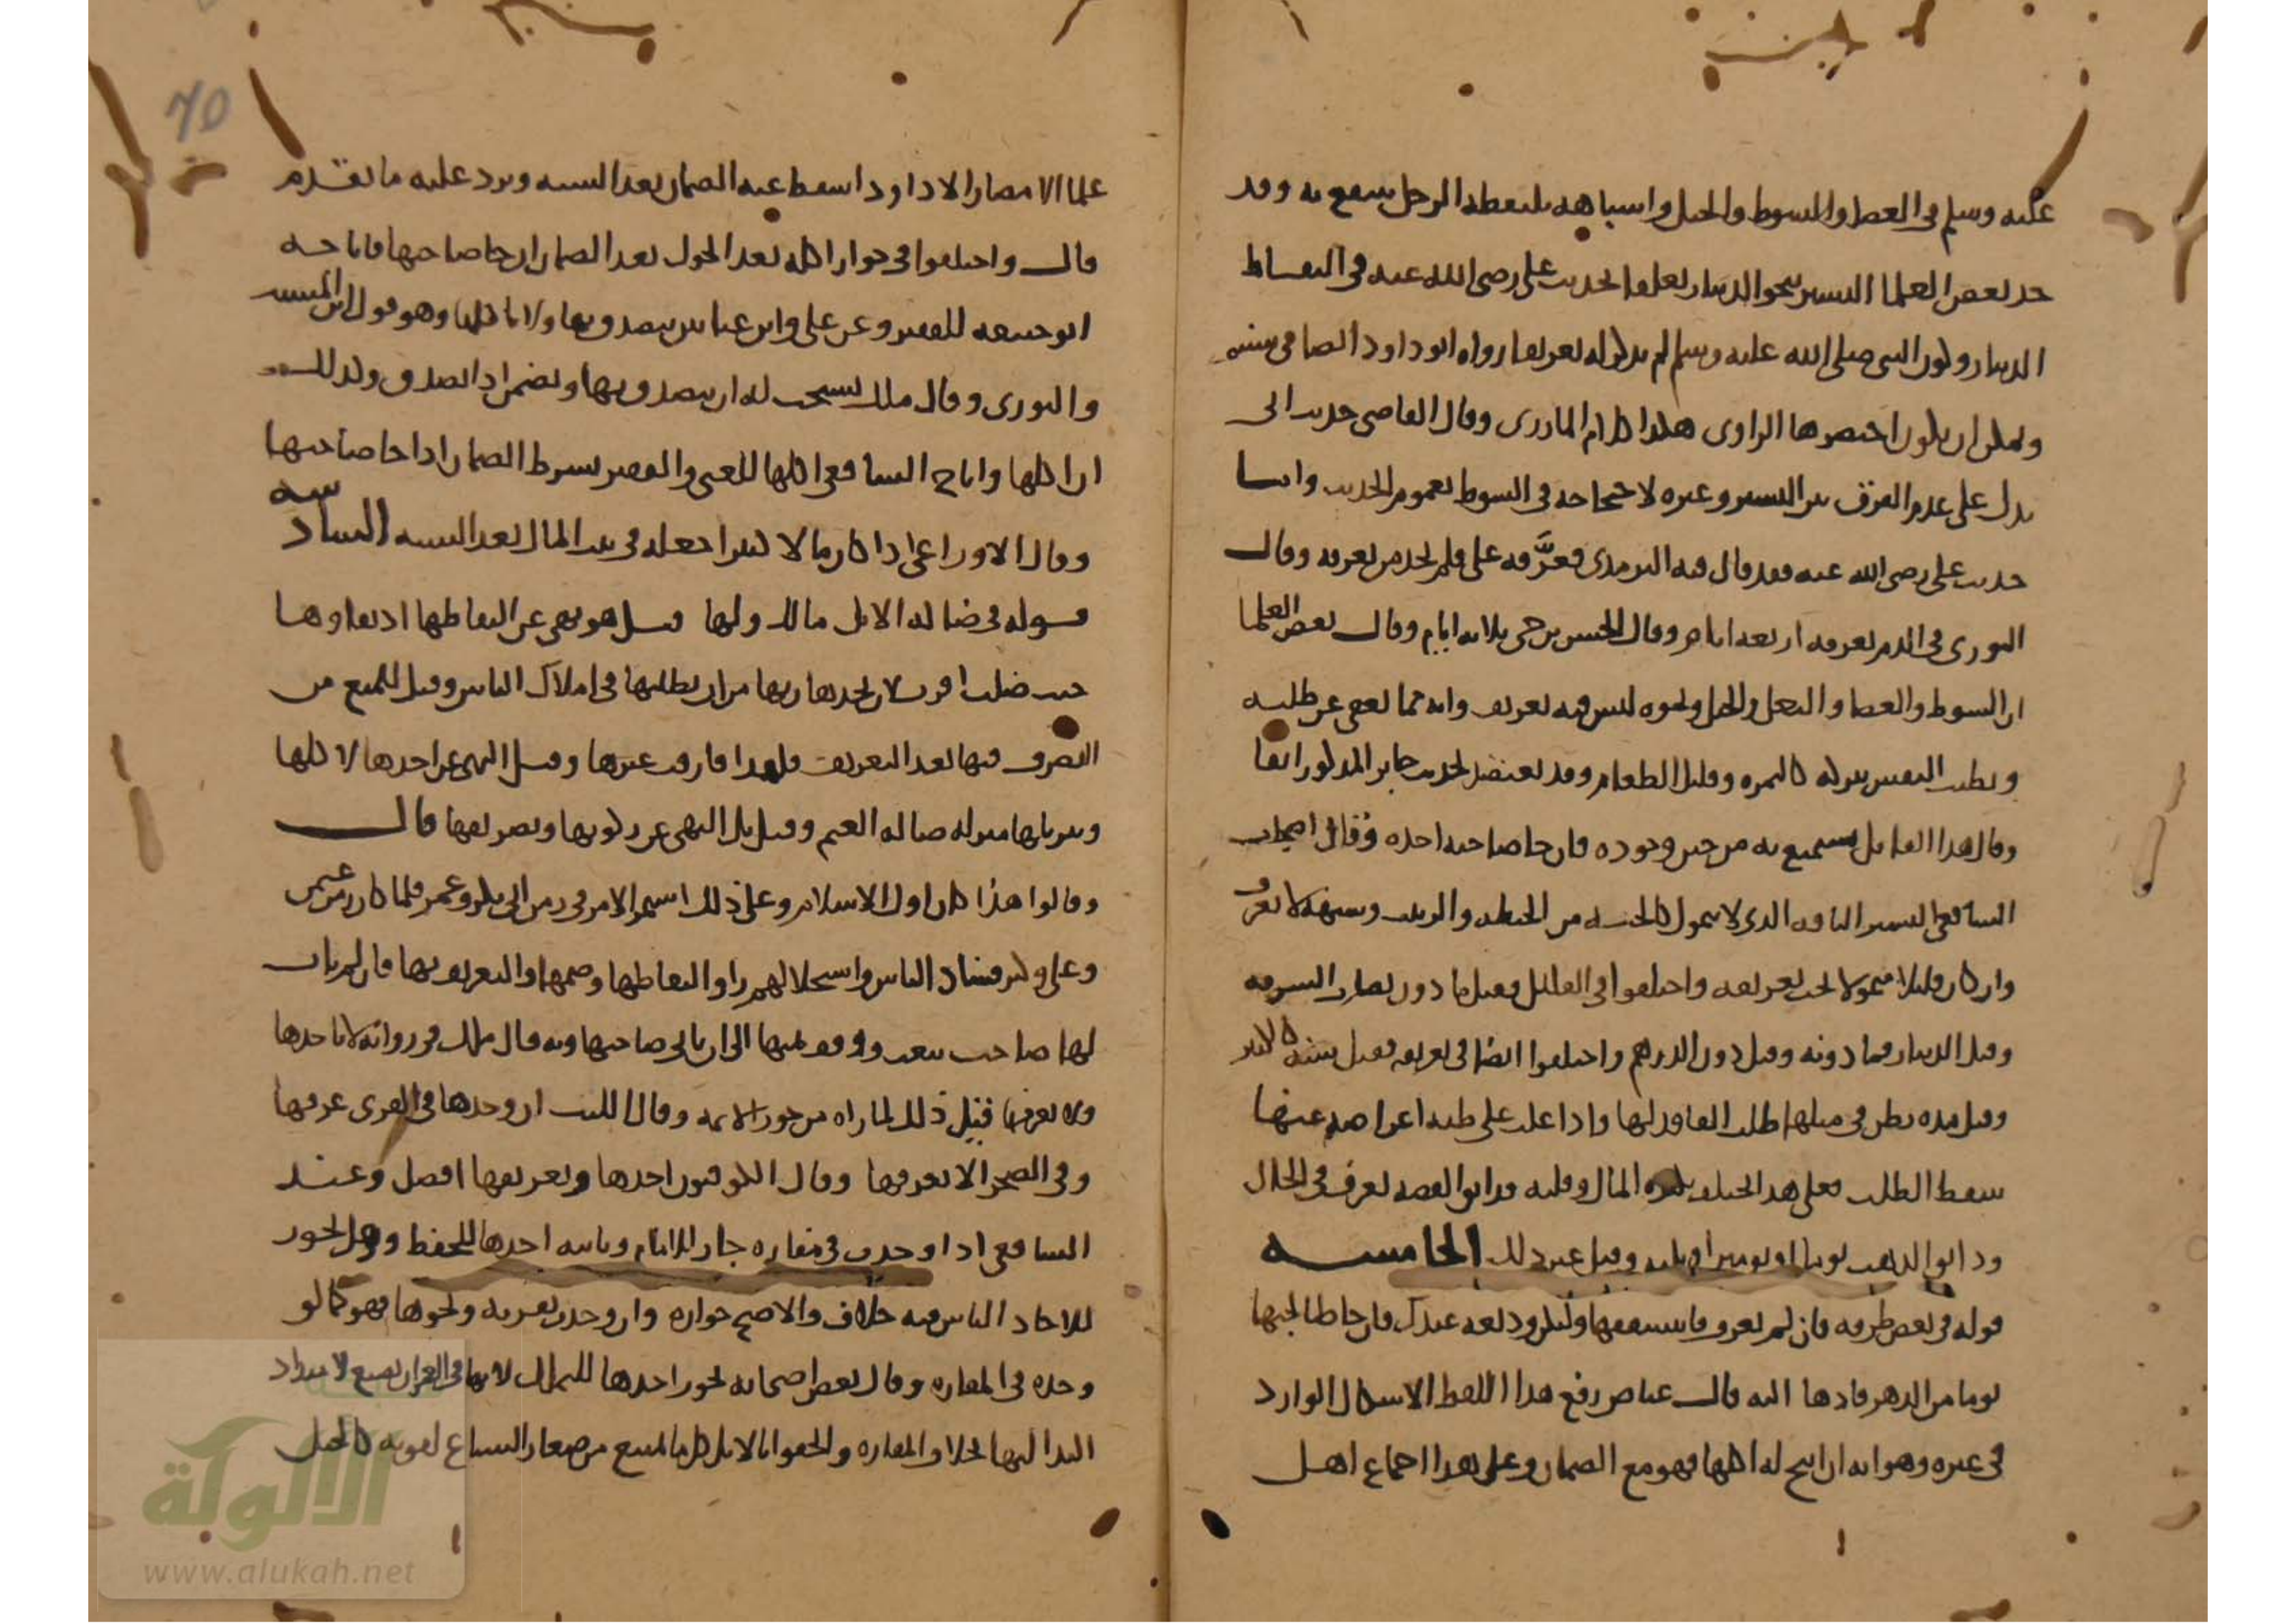 عليه وسلم في العصا والسوط والحبل واشباهه يلتقطه الرجل ينتفع به وقد
حد بعض العلما اليسير بنحو الدينار تعلقا بحديث علي رضي الله عنه في التقاط
الدينار وكون النبي صلى الله عليه وسلم لم يذكر له تعريفا رواه ابو داود ايضا في سننه
ويمكن ان يكون اختصرها الراوي هكذا كلام المازري وقال القاضي حديث ابي
يدل على عدم الفرق بين اليسير وغيره لاحتجاجه في السوط بعموم الحديث واما
حديث علي رضي الله عنه فقد قال فيه الترمذي فعرَّفه علي فلم يجد من يعرفه وقال
الثوري في الدرهم يعرفه اربعة ايام وقال الحسن بن حي ثلاثة ايام وقال بعض العلما
ان السوط والعصا والنعل والحبل ونحوه ليس فيه تعريف وانه مما يعفى عن طلبه
وتطيب النفس بتركه كالتمرة وقليل الطعام وقد يعتضد بحديث جابر المذكور انفا
وقال هذا القايل يستمتع به من حين وجوده فان جا صاحبه اخذه وقال اصحاب
الشافعي اليسير التافه الذي لا يتمول كالحبة من الحنطة والزبيب وشبهها لا يعرف
وان كان قليلا متمولا يجب تعريفه واختلفوا في القليل فقيل ما دون نصاب السرقة
وقيل الدينار فما دونه وقيل دون الدرهم واختلفوا ايضا في تعريفه فقيل سنة كالكثير
وقيل مدة يظن في مثلها طلب الفاقد لها واذا غلب على ظنه اعراضه عنها
سقط الطلب فعلى هذا يختلف بكثرة المال وقلته فدانق الفضة يعرف في الحال
ودانق الذهب يوما او يومين او ثلثه وقيل غير ذلك الخامسه
قوله في بعض طرقه فان لم تعرف فاستنفقها ولتكن وديعة عندك فان جا طالبها
يوما من الدهر فادها اليه قال عياض رفع هذا اللفظ الاشكال الوارد
في غيره وهو انه ان ابيح له اكلها فهو مع الضمان وعلى هذا اجماع اهل
70
علما الامصار الا داود اسقط عنه الضمان بعد السنه ويرد عليه ما تقدم
قال واختلفوا في جواز اكله بعد الحول بعد الضمان ان جا صاحبها فاباحه
ابو حنيفه للفقير وعن علي وابن عباس يتصدق بها ولا ياكلها وهو قول ابن المسيب
والثوري وقال ملك يستحب له ان يتصدق بها ويضمن اذا تصدق وكذلك
ان اكلها واباح الشافعي اكلها للغني والفقير بشرط الضمان اذا جا صاحبها
وقال الاوزاعي اذا كان مالا كثيرا جعله في بيت المال بعد السنه السادسه
قوله في ضالة الابل مالك ولها قيل هو نهي عن التقاطها اذ بقاوها
حيث ضلت اقرب لان يجدها ربها من ان يطلبها في املاك الناس وقيل للمنع من
التصرف فيها بعد التعريف فلهذا فارقت غيرها وقيل النهي عن اخذها لاكلها
وقيل بل النهي عن ركوبها وتصريفها قال
وقالوا هذا كان اول الاسلام وعلى ذلك استمر الامر في زمن ابي بكر وعمر فلما كان زمن عثمن
وعلي وكثر فساد الناس واستحلالهم راوا التقاطها وضمها والتعريف بها فان لم يات
لها صاحب بيعت ووقف ثمنها الى ان ياتي صاحبها وبه قال ملك في رواية لا ياخذها
ولا يعرفها قيل ذلك لما راه من جور الائمه وقال الليث ان وجدها في القرى عرفها
وفي الصحرا لا يعرفها وقال الكوفيون اخذها وتعريفها افضل وعند
الشافعي اذا وجدت في مفازة جاز للامام ونايبه اخذها للحفظ وهل يجوز
للاحاد الناس فيه خلاف والاصح جوازه وان وجدت بقرية ونحوها فهو كما لو
وجده في المفازة وقال بعض اصحابه يجوز اخذها للتملك لانها في العمران تضيع لامتداد
اليد اليها بخلاف المفازة والحقوا بالابل كل ما يمتنع من صغار السباع لقوته كالخيل
الألوكة
www.alukah.net